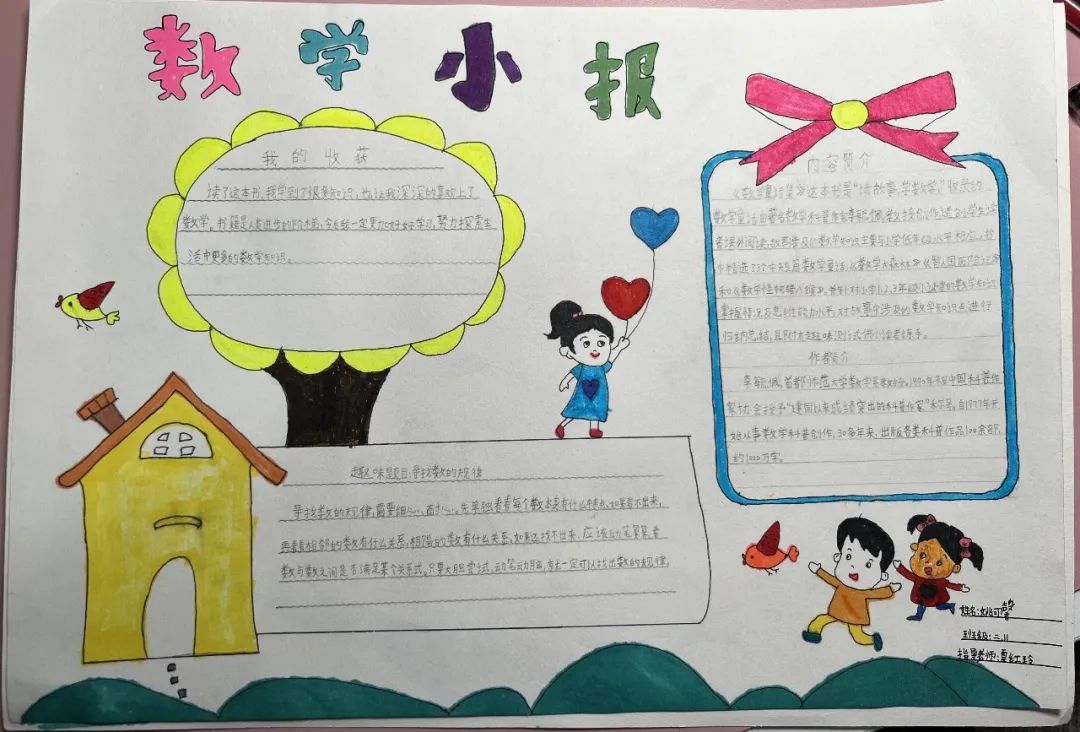 数学小报
我的收获
读了这本书,我学到了很多知识,也让我深深的喜欢上了
数学。书籍是人类进步的阶梯,今后我一定更加好好学习,努力探索生
活中更多的数学知识。
内容简介
《数学童话集》这本书是“读故事,学数学,”收录的
数学童话由著名数学科普作家李毓佩教授创作,适合小学生读
者课外阅读,故事涉及的数学知识主要与小学低年级水平相应。书
中精选了3个中短篇数学童话:《数学大森林》《智人国历险记》
和《数学怪物猪八猴》。并针对小学1、2、3年级小读者的数学知识
掌握情况及思维能力水平,对故事中涉及的数学知识点进行
归纳总结,且附有趣味测试供小读者练手。
作者简介
李毓佩,首都师范大学数学系教授。1990年被中国科普作
家协会授予“建国以来成绩突出的科普作家”称号。自1977年开
始从事数学科普创作,30多年来,出版各类科普作品100余部,
约1000万字。
趣味题目:寻找数的规律
寻找数的规律,需要细心、耐心。先单独看看每个数本身有什么特点,如果看不出来,
再看看相邻的数有什么关系,相隔的数有什么关系,如果还找不出来,应该动笔算算,看
数与数之间是否满足某个关系式。只要大胆尝试,动笔动脑,就一定可以找出数的规律。
姓名:
班级:二.11
指导老师:夏红玲